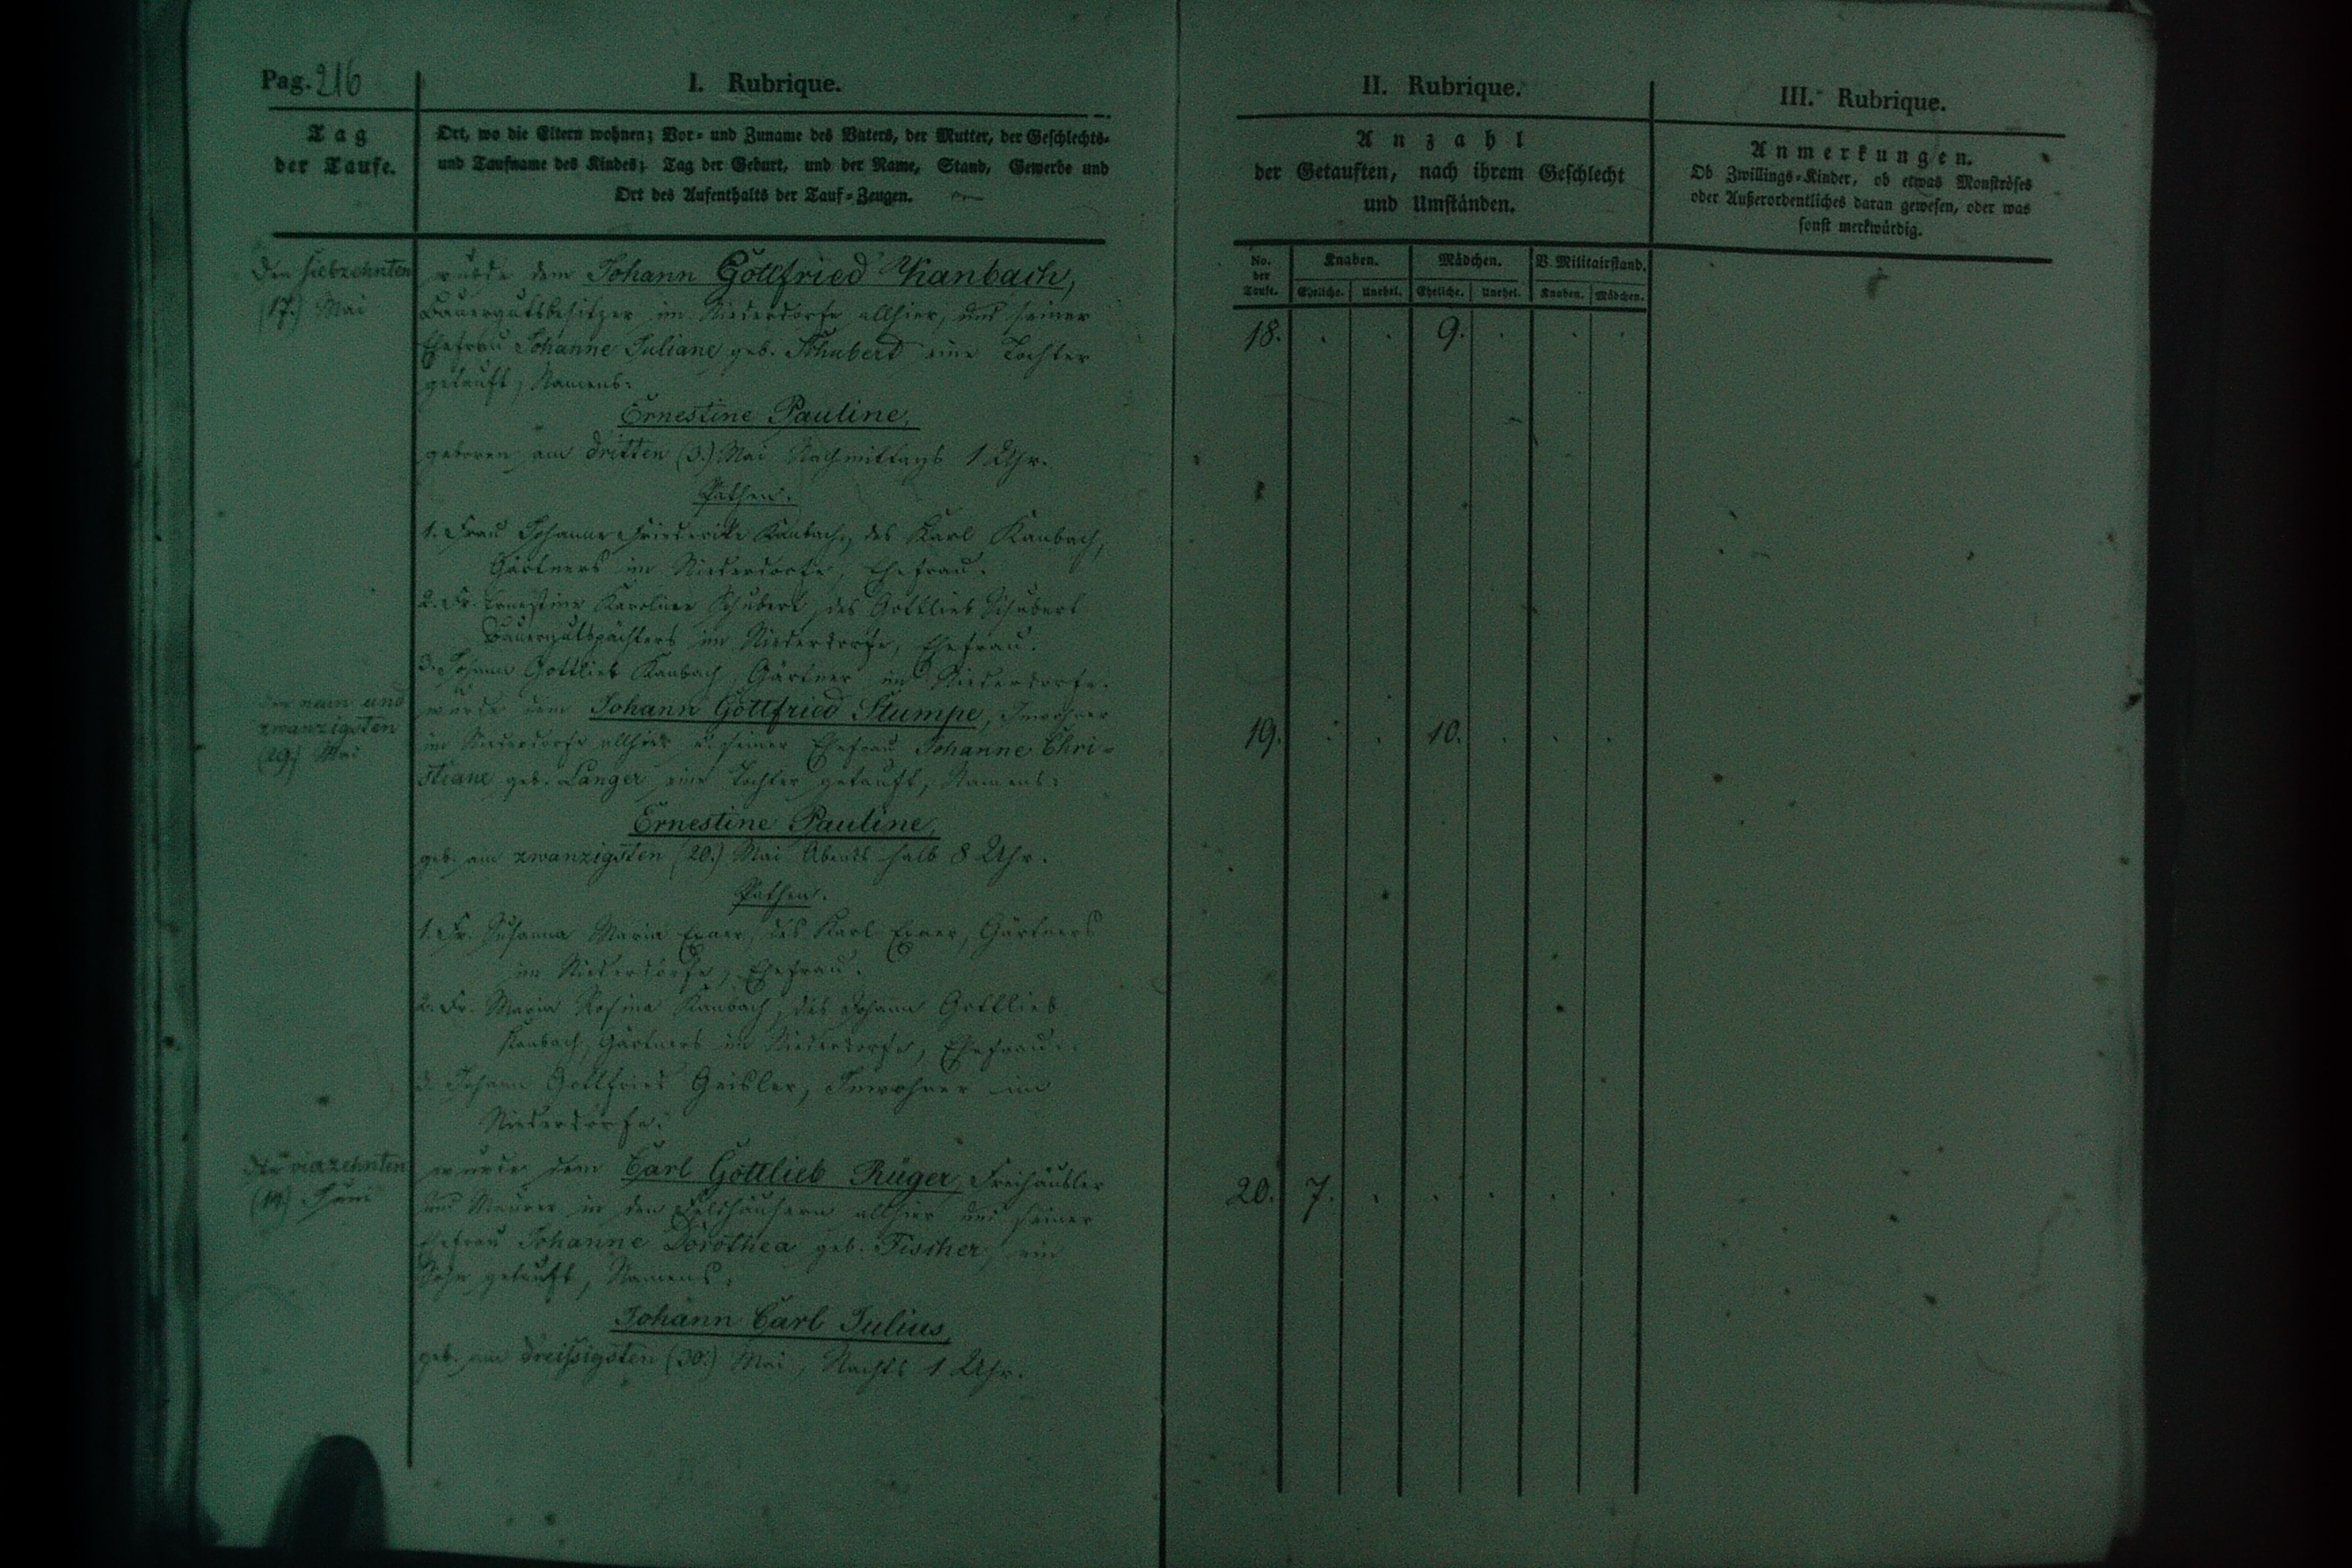 Pag. 216
I. Rubrique.
Tag
der Taufe.
Ort, wo die Eltern wohnen; Vor- und Zuname des Vaters, der Mutter, der Geschlechts-
und Taufname des Kindes; Tag der Geburt, und der Name, Stand, Gewerbe und
Ort des Aufenthalts der Tauf-Zeugen.
Den siebzehnten
(17.) Mai
wurde dem Johann Gottfried Kanbach,
Bauergutsbesitzer im Niederdorfe allhier, und seiner
Ehefrau Johanne Juliane geb. Schubert eine Tochter
getauft, Namens:
Ernestine Pauline,
geboren am dritten (3.) Mai Nachmittags 1 Uhr.
Pathen.
1. Frau Johanne Friederike Kanbach, des Karl Kanbach,
Gärtners im Niederdorfe, Ehefrau.
2. Fr. Ernestine Karoline Schubert, des Gottlieb Schubert
Bauergutspächters im Niederdorfe, Ehefrau.
3. Johann Gottlieb Kanbach, Gärtner im Niederdorfe.
Den neun und
zwanzigsten
(29.) Mai
wurde dem Johann Gottfried Stumpe, Inwohner
im Niederdorfe allhier u. seiner Ehefrau Johanne Chri-
stiane geb. Langer eine Tochter getauft, Namens:
Ernestine Pauline,
geb. am zwanzigsten (20.) Mai Abends halb 8 Uhr.
Pathen.
1. Fr. Susanna Maria Exner, des Karl Exner, Gärtners
im Niederdorfe, Ehefrau.
2. Fr. Maria Rosina Kanbach, des Johann Gottlieb
Kanbach, Gärtners im Niederdorfe, Ehefrau.
3. Johann Gottfried Geisler, Inwohner im
Niederdorfe.
Den vierzehnten
(14.) Juni
wurde dem Carl Gottlieb Rüger, Freihäusler
und Maurer in den Feldhäusern allhier und seiner
Ehefrau Johanne Dorothea geb. Fischer, ein
Sohn getauft, Namens:
Johann Carl Julius,
geb. am dreißigsten (30.) Mai, Nachts 1 Uhr.
II. Rubrique.
Anzahl
der Getauften, nach ihrem Geschlecht
und Umständen.
No.
der
Taufe.
Knaben.
Mädchen.
V. Militairstand.
Eheliche.
Unehel.
Eheliche.
Unehel.
Knaben.
Mädchen.
18. . . 9. . . .
19. . . 10. . . .
20. 7. . . . . .
III. Rubrique.
Anmerkungen.
Ob Zwillings-Kinder, ob etwas Monströses
oder Außerordentliches daran gewesen, oder was
sonst merkwürdig.